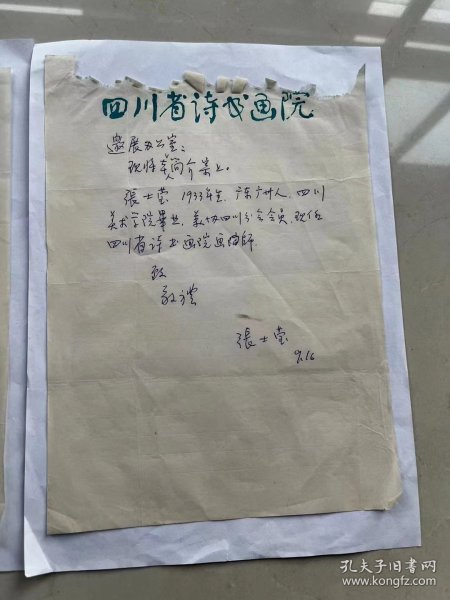 四川省诗书画院
邀展办公室：
现将本人简介寄上。
張士莹，1933年生，广东广州人，四川
美术学院畢业，美协四川分会会员，现任
四川省诗书画院画师
致
敬礼
張士莹
9.16
孔夫子旧书网
www.kongfz.com